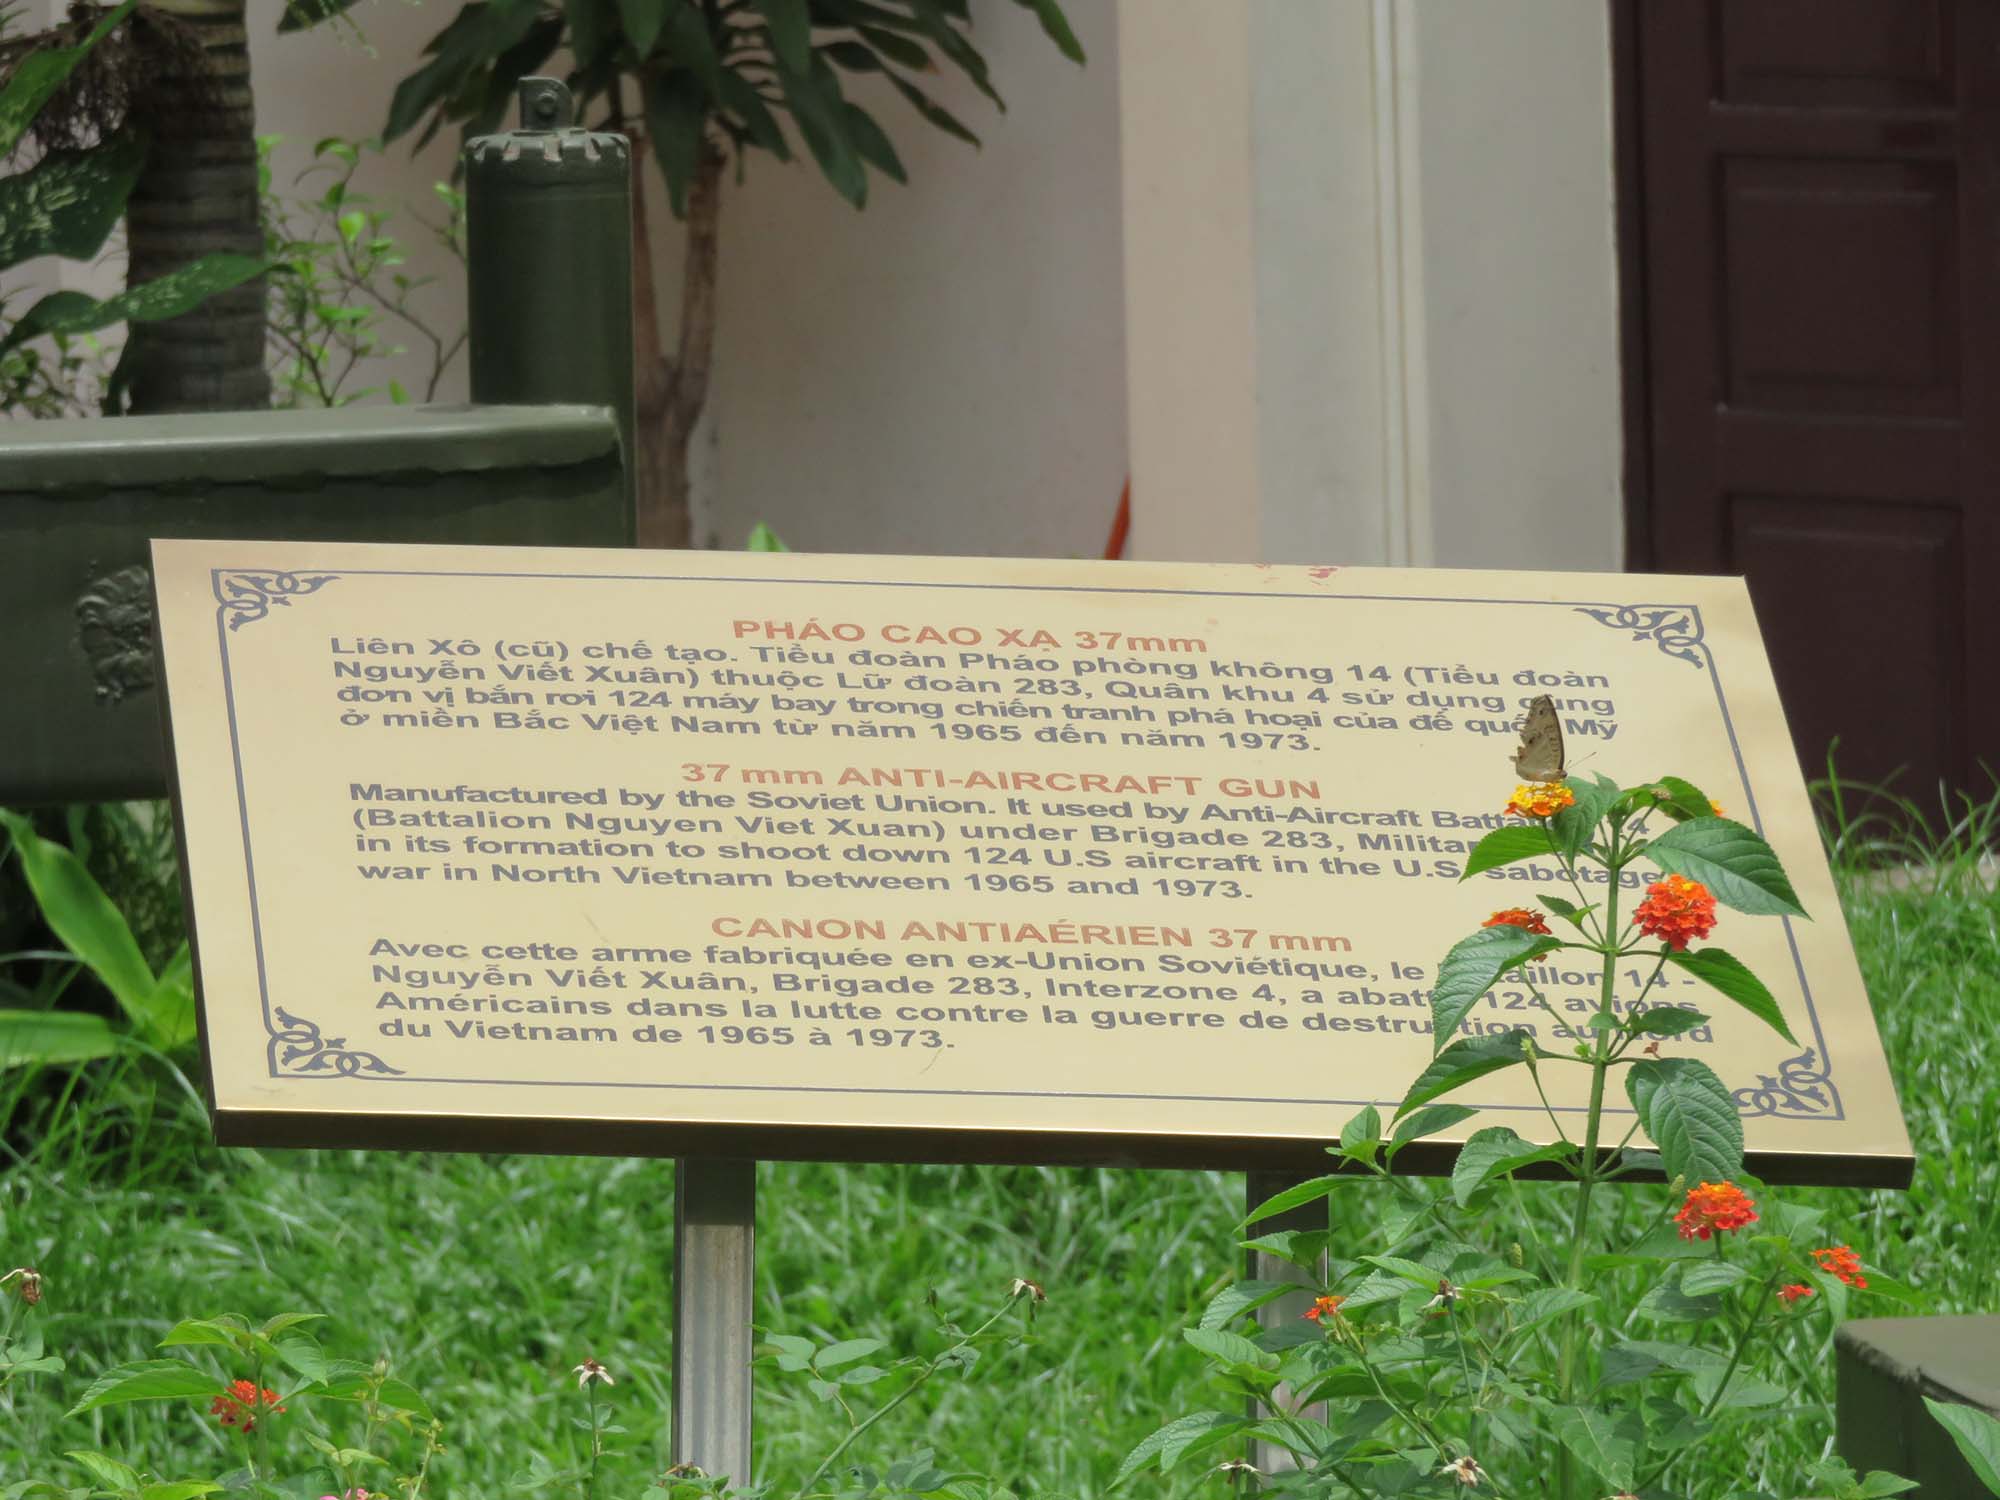 PHÁO CAO XẠ 37mm
Liên Xô (cũ) chế tạo. Tiểu đoàn Pháo phòng không 14 (Tiểu đoàn
Nguyễn Viết Xuân) thuộc Lữ đoàn 283, Quân khu 4 sử dụng cùng
đơn vị bắn rơi 124 máy bay trong chiến tranh phá hoại của đế quốc Mỹ
ở miền Bắc Việt Nam từ năm 1965 đến năm 1973.
37 mm ANTI-AIRCRAFT GUN
Manufactured by the Soviet Union. It used by Anti-Aircraft
(Battalion Nguyen Viet Xuan) under Brigade 283,
in its formation to shoot down 124 U.S aircraft in the U.S. sabotage
war in North Vietnam between 1965 and 1973.
CANON ANTIAÉRIEN 37 mm
Avec cette arme fabriquée en ex-Union Soviétique, le 14 -
Nguyễn Viết Xuân, Brigade 283, Interzone 4, a 124 avions
Américains dans la lutte contre la guerre de destruction au Nord
du Vietnam de 1965 à 1973.